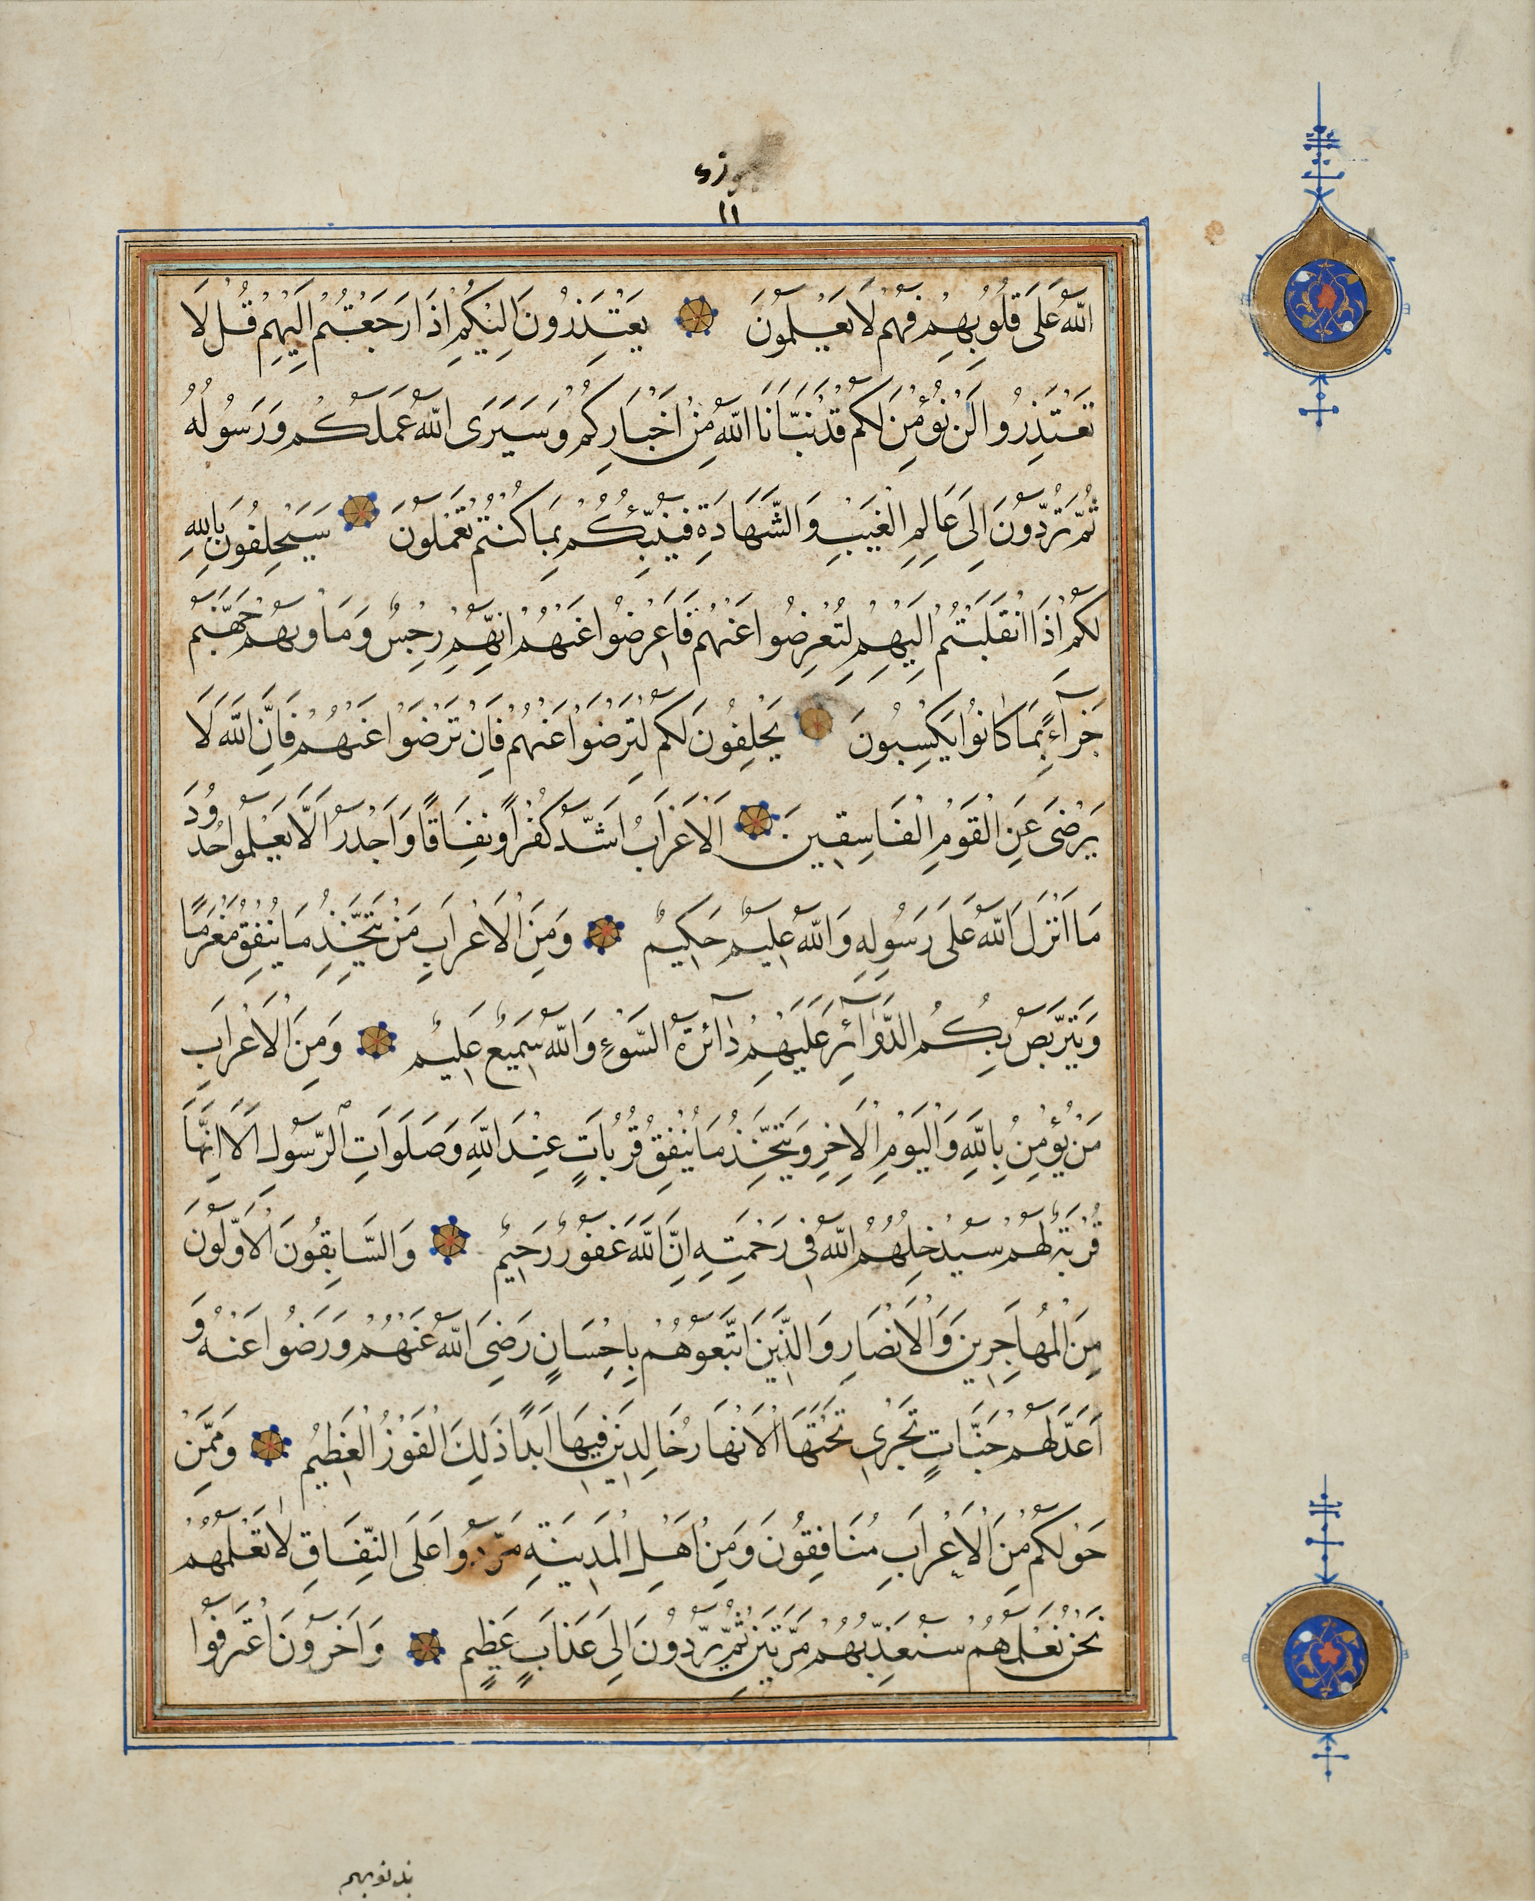 ١١
اللّٰهُ عَلَى قُلُوبِهِمْ فَهُمْ لَا يَعْلَمُونَ يَعْتَذِرُونَ اِلَيْكُمْ اِذَا رَجَعْتُمْ اِلَيْهِمْ قُلْ لَا
تَعْتَذِرُوا لَنْ نُؤْمِنَ لَكُمْ قَدْ نَبَّاَنَا اللّٰهُ مِنْ اَخْبَارِكُمْ وَسَيَرَى اللّٰهُ عَمَلَكُمْ وَرَسُولُهُ
ثُمَّ تُرَدُّونَ اِلَى عَالِمِ الْغَيْبِ وَالشَّهَادَةِ فَيُنَبِّئُكُمْ بِمَا كُنْتُمْ تَعْمَلُونَ سَيَحْلِفُونَ بِاللّٰهِ
لَكُمْ اِذَا انْقَلَبْتُمْ اِلَيْهِمْ لِتُعْرِضُوا عَنْهُمْ فَاَعْرِضُوا عَنْهُمْ اِنَّهُمْ رِجْسٌ وَمَاْوٰيهُمْ جَهَنَّمُ
جَزَآءً بِمَا كَانُوا يَكْسِبُونَ يَحْلِفُونَ لَكُمْ لِتَرْضَوْا عَنْهُمْ فَاِنْ تَرْضَوْا عَنْهُمْ فَاِنَّ اللّٰهَ لَا
يَرْضَى عَنِ الْقَوْمِ الْفَاسِقِينَ اَلْاَعْرَابُ اَشَدُّ كُفْرًا وَنِفَاقًا وَاَجْدَرُ اَلَّا يَعْلَمُوا حُدُودَ
مَا اَنْزَلَ اللّٰهُ عَلَى رَسُولِهِ وَاللّٰهُ عَلِيمٌ حَكِيمٌ وَمِنَ الْاَعْرَابِ مَنْ يَتَّخِذُ مَا يُنْفِقُ مَغْرَمًا
وَيَتَرَبَّصُ بِكُمُ الدَّوَآئِرَ عَلَيْهِمْ دَآئِرَةُ السَّوْءِ وَاللّٰهُ سَمِيعٌ عَلِيمٌ وَمِنَ الْاَعْرَابِ
مَنْ يُؤْمِنُ بِاللّٰهِ وَالْيَوْمِ الْاٰخِرِ وَيَتَّخِذُ مَا يُنْفِقُ قُرُبَاتٍ عِنْدَ اللّٰهِ وَصَلَوَاتِ الرَّسُولِ اَلَا اِنَّهَا
قُرْبَةٌ لَهُمْ سَيُدْخِلُهُمُ اللّٰهُ فِي رَحْمَتِهِ اِنَّ اللّٰهَ غَفُورٌ رَحِيمٌ وَالسَّابِقُونَ الْاَوَّلُونَ
مِنَ الْمُهَاجِرِينَ وَالْاَنْصَارِ وَالَّذِينَ اتَّبَعُوهُمْ بِاِحْسَانٍ رَضِيَ اللّٰهُ عَنْهُمْ وَرَضُوا عَنْهُ وَ
اَعَدَّ لَهُمْ جَنَّاتٍ تَجْرِي تَحْتَهَا الْاَنْهَارُ خَالِدِينَ فِيهَا اَبَدًا ذَلِكَ الْفَوْزُ الْعَظِيمُ وَمِمَّنْ
حَوْلَكُمْ مِنَ الْاَعْرَابِ مُنَافِقُونَ وَمِنْ اَهْلِ الْمَدِينَةِ مَرَدُوا عَلَى النِّفَاقِ لَا تَعْلَمُهُمْ
نَحْنُ نَعْلَمُهُمْ سَنُعَذِّبُهُمْ مَرَّتَيْنِ ثُمَّ يُرَدُّونَ اِلَى عَذَابٍ عَظِيمٍ وَاٰخَرُونَ اعْتَرَفُوا
بذنوبهم